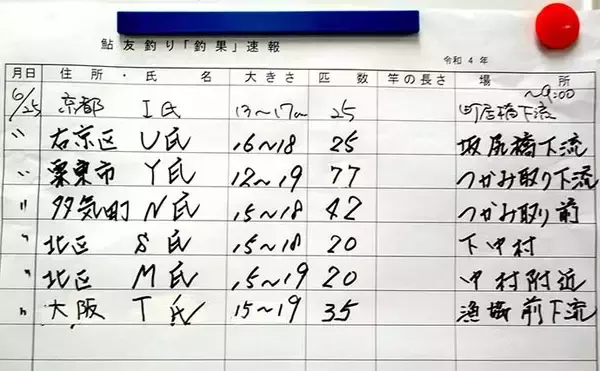 鮎友釣り「釣果」速報
令和4年
月日 住所・氏名 大きさ 匹数 竿の長さ 場所
~9:00
6/25 京都 I氏 13~17cm 25 町居橋下流
〃 右京区 U氏 16~18 25 坂尻橋下流
〃 栗東市 Y氏 12~19 77 つかみ取り下流
〃 多気町 N氏 15~18 42 つかみ取り前
〃 北区 S氏 15~18 20 下中村
〃 北区 M氏 15~19 20 中村附近
〃 大阪 T氏 15~19 35 漁協前下流